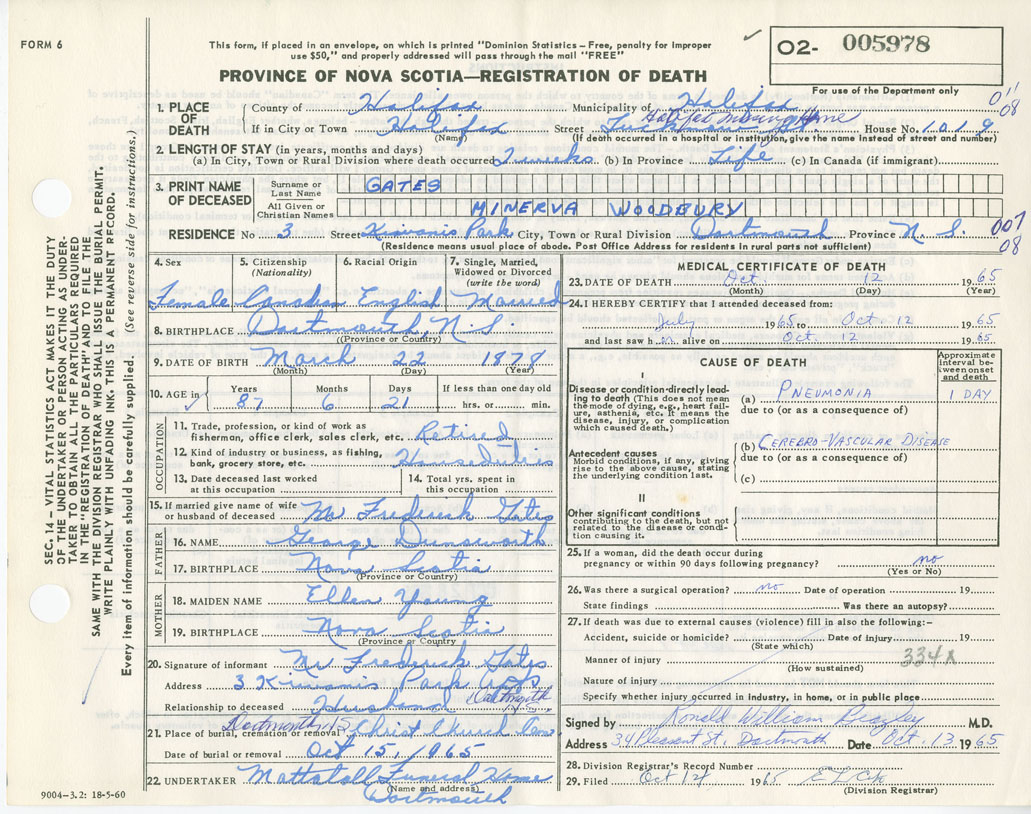 FORM 6
This form, if placed in an envelope, on which is printed "Dominion Statistics – Free, penalty for improper
use $50," and properly addressed will pass through the mail "FREE"
PROVINCE OF NOVA SCOTIA—REGISTRATION OF DEATH
O2- 005978
For use of the Department only
SEC. 14 – VITAL STATISTICS ACT MAKES IT THE DUTY
OF THE UNDERTAKER OR PERSON ACTING AS UNDER-
TAKER TO OBTAIN ALL THE PARTICULARS REQUIRED
IN THE "REGISTRATION OF DEATH" AND TO FILE THE
SAME WITH THE DIVISION REGISTRAR WHO SHALL ISSUE THE BURIAL PERMIT.
WRITE PLAINLY WITH UNFADING INK. THIS IS A PERMANENT RECORD.
Every item of information should be carefully supplied. (See reverse side for instructions.)
1. PLACE OF DEATH
County of Halifax Municipality of Halifax
Halifax Nursing Home
If in City or Town Halifax Street House No. 1019
(Name) (If death occurred in a hospital or institution, give the name instead of street and number)
011
08
2. LENGTH OF STAY (in years, months and days)
(a) In City, Town or Rural Division where death occurred 2 weeks (b) In Province Life (c) In Canada (if immigrant)
3. PRINT NAME OF DECEASED
Surname or Last Name GATES
All Given or Christian Names MINERVA WOODBURY
RESIDENCE No 3 Street Kiwanis Park City, Town or Rural Division Dartmouth Province N.S.
(Residence means usual place of abode. Post Office Address for residents in rural parts not sufficient)
007
08
4. Sex Female
5. Citizenship (Nationality) Canadian
6. Racial Origin English
7. Single, Married, Widowed or Divorced (write the word) Married
8. BIRTHPLACE Dartmouth, N.S.
(Province or Country)
9. DATE OF BIRTH March 22 1878
(Month) (Day) (Year)
10. AGE in Years 87 Months 6 Days 21 If less than one day old hrs. or min.
OCCUPATION
11. Trade, profession, or kind of work as
fisherman, office clerk, sales clerk, etc. Retired
12. Kind of industry or business, as fishing,
bank, grocery store, etc. Houseduties
13. Date deceased last worked
at this occupation
14. Total yrs. spent in
this occupation
15. If married give name of wife
or husband of deceased Mr Frederick Gates
FATHER
16. NAME George Dunsworth
17. BIRTHPLACE Nova Scotia
(Province or Country)
MOTHER
18. MAIDEN NAME Ellen Young
19. BIRTHPLACE Nova Scotia
(Province or Country)
20. Signature of informant Mr Frederick Gates
Address 3 Kiwanis Park Apts
Dartmouth
Relationship to deceased Husband
Dartmouth
21. Place of burial, cremation or removal Christ Church Cem
Date of burial or removal Oct 15, 1965
22. UNDERTAKER Mattatall Funeral Home
(Name and address)
Dartmouth
9004–3.2: 18-5-60
MEDICAL CERTIFICATE OF DEATH
23. DATE OF DEATH Oct. 12 1965
(Month) (Day) (Year)
24. I HEREBY CERTIFY that I attended deceased from:
July 1965 to Oct. 12 1965
and last saw h alive on Oct. 12 1965
CAUSE OF DEATH
Approximate interval between onset and death
I
Disease or condition directly lead-
ing to death (This does not mean
the mode of dying, e.g., heart fail-
ure, asthenia, etc. It means the
disease, injury, or complication
which caused death.)
(a) PNEUMONIA 1 DAY
due to (or as a consequence of)
Antecedent causes
Morbid conditions, if any, giving
rise to the above cause, stating
the underlying condition last.
(b) CEREBRO-VASCULAR DISEASE
due to (or as a consequence of)
(c)
II
Other significant conditions
contributing to the death, but not
related to the disease or condi-
tion causing it.
25. If a woman, did the death occur during
pregnancy or within 90 days following pregnancy? no
(Yes or No)
26. Was there a surgical operation? no Date of operation 19
State findings Was there an autopsy?
27. If death was due to external causes (violence) fill in also the following:–
Accident, suicide or homicide? Date of injury 19
(State which)
Manner of injury
(How sustained)
334X
Nature of injury
Specify whether injury occurred in industry, in home, or in public place
Signed by Ronald William Beazley M.D.
Address 34 Pleasant St., Dartmouth Date Oct. 13 1965
28. Division Registrar's Record Number
29. Filed Oct 14 1965
(Division Registrar)